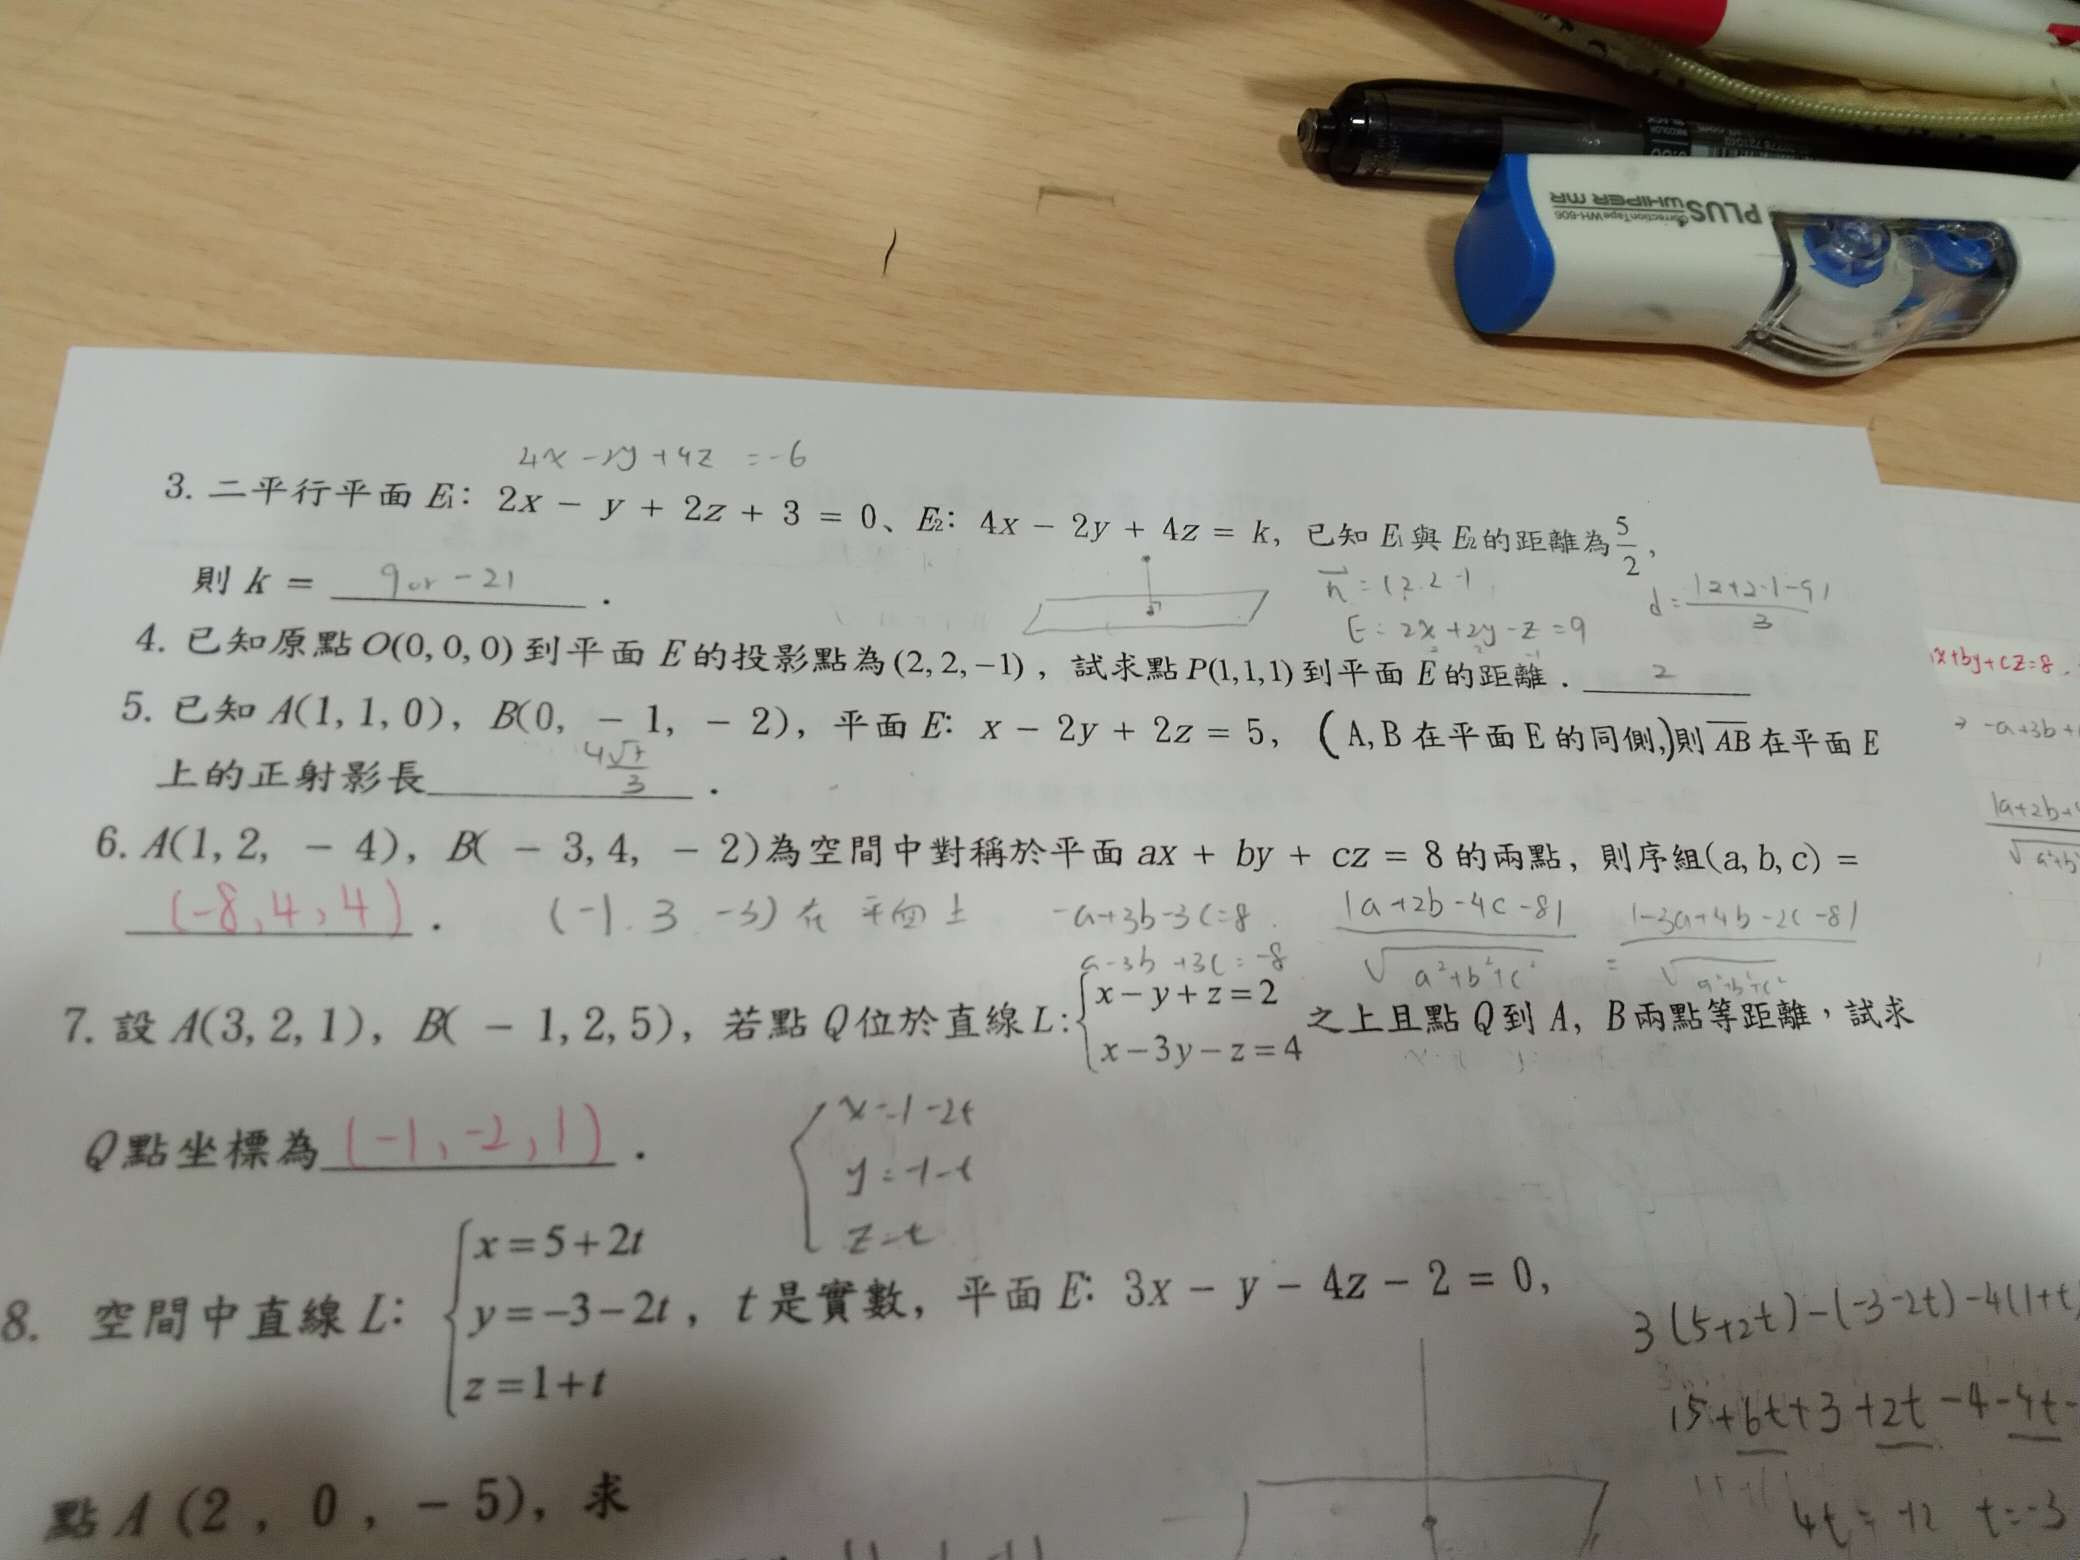 PLUS WHIPER MR
Correction Tape WH-606
4x-2y+4z =-6
3. 二平行平面 E₁: 2x − y + 2z + 3 = 0、E₂: 4x − 2y + 4z = k, 已知 E₁ 與 E₂ 的距離為 5/2,
則 k = 9 or -21 .
n = (2.2 -1
d = |2+2-1-9| / 3
E: 2x+2y-z=9
4. 已知原點 O(0, 0, 0) 到平面 E 的投影點為 (2, 2, −1) , 試求點 P(1, 1, 1) 到平面 E 的距離 . 2
5. 已知 A(1, 1, 0), B(0, − 1, − 2), 平面 E: x − 2y + 2z = 5, (A, B 在平面 E 的同側,)則 AB 在平面 E
上的正射影長 .
6. A(1, 2, − 4), B( − 3, 4, − 2)為空間中對稱於平面 ax + by + cz = 8 的兩點, 則序組(a, b, c) =
(-8, 4, 4) . (-1. 3 -3) 在 平面上
-a+3b-3c=8
a-3b+3c=-8
|a+2b-4c-8| / √a²+b²+c² = |-3a+4b-2c-8| / √a²+b²+c²
7. 設 A(3, 2, 1), B( − 1, 2, 5), 若點 Q 位於直線 L: { x−y+z=2
x−3y−z=4 之上且點 Q 到 A, B 兩點等距離,試求
Q 點坐標為 (-1, -2, 1) .
y=-1-t
z=t
8. 空間中直線 L: { x=5+2t
y=−3−2t , t 是實數, 平面 E: 3x − y − 4z − 2 = 0,
z=1+t
點 A (2 , 0 , − 5), 求
3(5+2t)-(-3-2t)-4(1+t)
15+6t+3+2t-4-4t-
4t=-12 t=-3
x+by+cz=8
-a+3b+